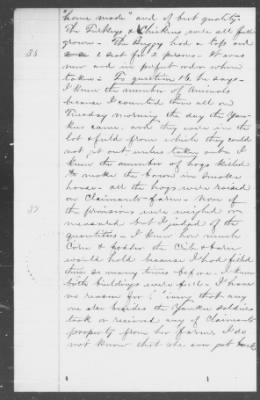 "home made" and of best quality.
The Turkeys & Chickens were all full
grown - The Buggy had a top and
35
a seat for 2 persons. It was
new and in perfect order when
taken - To question 16 he says -
I knew the number of Animals
because I counted them all on
Tuesday morning the day the Yan-
kees came, and they were in the
lot & field from which they could
not get out unless taken out. I
knew the number of hogs killed
to make the bacon in smoke
house - all the hogs were raised
on Claimants farm - None of
37
the provisions were weighed or
measured but I judged of the
quantities - I knew how much
Corn & fodder the Crib & barn
would hold because I had filled
them so many times before. I knew
both buildings were full - I have
no reason for that any
one else besides the Yankee soldiers
took or received any of Claimants
property from her farm I do
not know that she ever got back